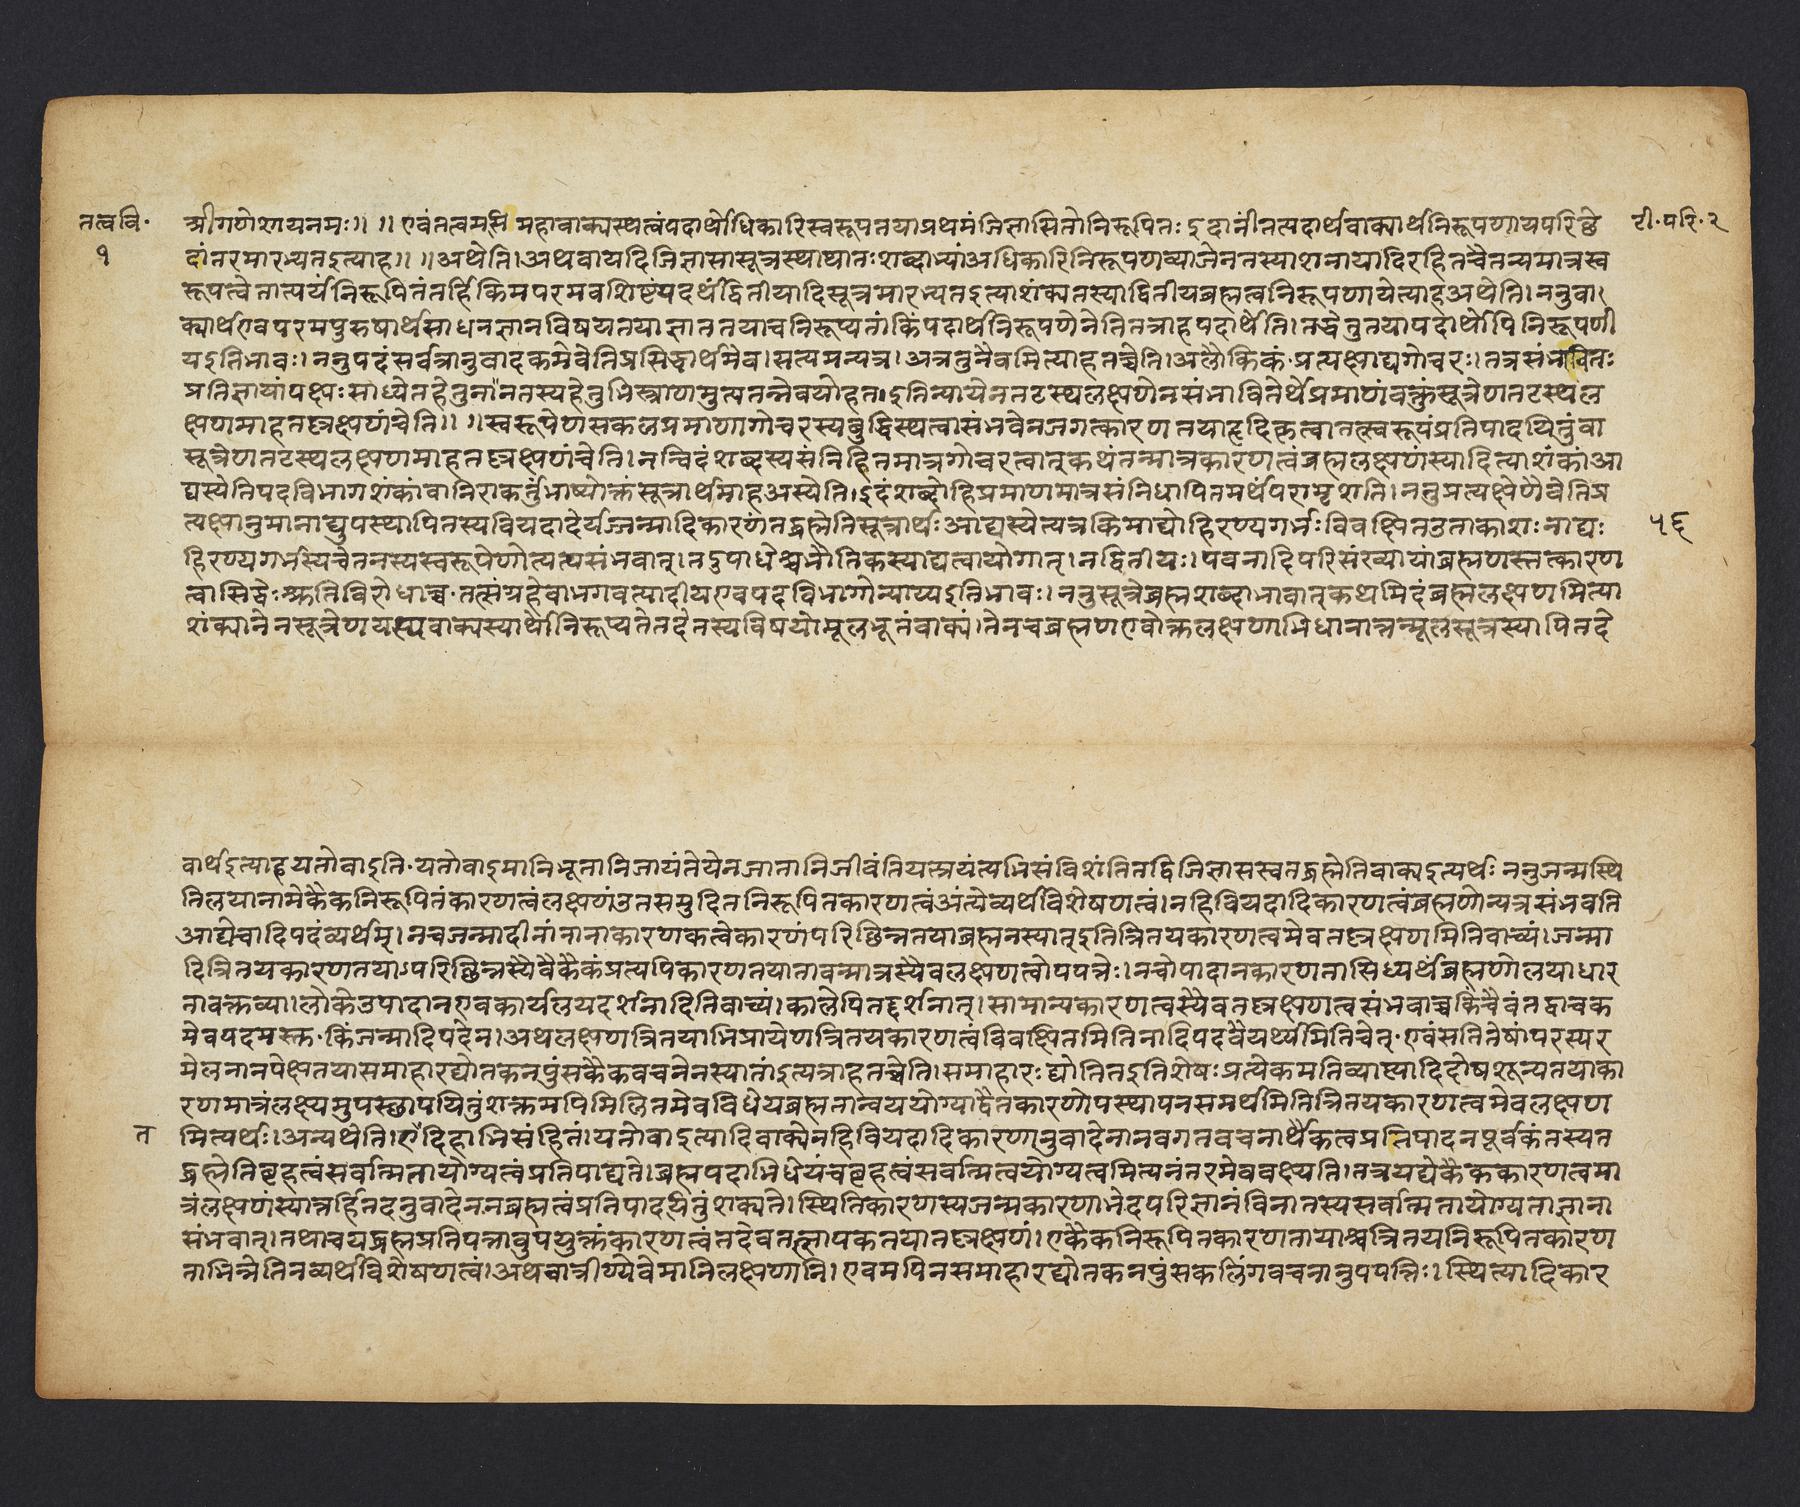 तत्ववि॰
१
श्रीगणेशायनमः॥ ॥ एवंतत्वमसि महावाक्यस्थत्वंपदार्थोधिकारिस्वरूपतयाप्रथमंजिज्ञासितोनिरूपितः इदानींतत्पदार्थवाक्यार्थनिरूपणायपरिछे
टी॰परि॰२
दांतरमारभ्यतइत्याह॥ ॥अथेति।अथवायदिजिज्ञासासूत्रस्थाथातःशब्दाभ्यांअधिकारिनिरूपणव्याजेनतस्याशनायादिरहितचैतन्यमात्रस्व
रूपत्वेतात्पर्यंनिरूपितंतर्हिकिमपरमवशिष्टंयदर्थंद्वितीयादिसूत्रमारभ्यतइत्याशंक्यतस्याद्वितीयब्रह्मत्वनिरूपणायेत्याहअथेति।ननुवा।
क्यार्थएवपरमपुरुषार्थसाधनज्ञानविषयतयाज्ञाततयाचनिरूप्यतांकिंपदार्थनिरूपणेनेतितत्राहपदार्थेति।तद्धेतुतयापदार्थोपिनिरूपणी
यइतिभावः।ननुपदंसर्वत्रानुवादकमेवेतिप्रसिद्धार्थमेव।सत्यमन्यत्र।अत्रतुनैवमित्याहतच्चेति।अलौकिकं॰प्रत्यक्षाद्यगोचरः।तत्रसंभावितः
प्रतिज्ञायांपक्षःसाध्येतहेतुना॥नतस्यहेतुभिस्त्राणमुत्पतन्नेवयोहतः।इतिन्यायेनतटस्थलक्षणेनसंभावितेर्थेप्रमाणंवक्तुंसूत्रेणतटस्थल
क्षणमाहतल्लक्षणंचेति॥ ॥स्वरूपेणसकलप्रमाणागोचरस्यबुद्धिस्थत्वासंभवेनजगत्कारणतयाहृदिकृत्वातत्स्वरूपंप्रतिपादयितुंवा
सूत्रेणतटस्थलक्षणमाहतल्लक्षणंचेति।नन्विदंशब्दस्यसंनिहितमात्रगोचरत्वात्कथंतन्मात्रकारणत्वंब्रह्मलक्षणंस्यादित्याशंकांआ
द्यस्येतिपदविभागशंकांवानिराकर्तुंभाष्योक्तंसूत्रार्थमाहअस्येति।इदंशब्दोहिप्रमाणमात्रसंनिधापितमर्थंपरामृशति।ननुप्रत्यक्षेणैवेतिप्र
त्यक्षानुमानाद्युपस्थापितस्यवियदादेर्यज्जन्मादिकारणंतद्ब्रह्मेतिसूत्रार्थः आद्यस्येत्यत्रकिमाद्योहिरण्यगर्भःविवक्षितउताकाशः नाद्यः
५६
हिरण्यगर्भस्यचेतनस्यस्वरूपेणोत्पत्यसंभवात्।तदुपाधेश्चभौतिकस्याद्यत्वायोगात्।नद्वितीयः।पवनादिपरिसंख्यायांब्रह्मणस्तत्कारण
त्वासिद्धेःश्रुतिविरोधाच्च॰तत्संग्रहेवाभगवत्पादीयएवपदविभागोन्याय्यइतिभावः।ननुसूत्रेब्रह्मशब्दाभावात्कथमिदंब्रह्मलक्षणमित्या
शंक्यानेनसूत्रेणयस्यवाक्यस्यार्थोनिरूप्यतेतदेतस्यविषयोमूलभूतंवाक्यं।तेनचब्रह्मणएवोक्तलक्षणाभिधानात्तन्मूलसूत्रस्यापितदे
वार्थइत्याहयतोवाइति॰यतोवाइमानिभूतानिजायंतेयेनजातानिजीवंतियत्प्रयंत्यभिसंविशंतितद्विजिज्ञासस्वतद्ब्रह्मेतिवाक्यइत्यर्थः ननुजन्मस्थि
तिलयानामेकैकनिरूपितंकारणत्वंलक्षणंउतसमुदितनिरूपितकारणत्वंअंत्येव्यर्थविशेषणत्वं।नहिवियदादिकारणत्वंब्रह्मणोन्यत्रसंभवति
आद्येचादिपदंव्यर्थम्।नचजन्मादीनांनानाकारणकत्वेकारणंपरिछिन्नतयाब्रह्मनस्यात्इतित्रितयकारणत्वमेवतल्लक्षणमितिवाच्यं।जन्मा
दित्रितयकारणतयाऽपरिछिन्नस्यैवैकैकंप्रत्यपिकारणतयातावन्मात्रस्यैवलक्षणत्वोपपत्तेः।नचोपादानकारणतासिध्यर्थंब्रह्मणोलयाधार
तावक्तव्या।लोकेउपादानएवकार्यलयदर्शनादितिवाच्यं।कालेपितद्दर्शनात्।सामान्यकारणत्वस्यैवतल्लक्षणत्वसंभवाच्चकिंचैवंतद्वाचक
मेवपदमस्तु॰किंजन्मादिपदेन।अथलक्षणत्रितयाभिप्रायेणत्रितयकारणत्वंविवक्षितमितिनादिपदवैयर्थ्यमितिचेत्॰एवंसतितेषांपरस्पर
मेलनानपेक्षतयासमाहारद्योतकनपुंसकैकवचनेनस्यातांइत्यत्राहतच्चेति।समाहारःद्योतितइतिशेषःप्रत्येकमतिव्याप्त्यादिदोषशून्यतयाका
रणमात्रंलक्ष्यमुपस्छापयितुंशक्तमपिमिलितमेवविधेयब्रह्मतान्वययोग्याद्वैतकारणोपस्थापनसमर्थमितित्रितयकारणत्वमेवलक्षण
त
मित्यर्थः।अन्यथेति।एदिहाभिसंहितं।यतोवाइत्यादिवाक्येनहिवियदादिकारणानुवादेनानवगतवचनार्थैकत्वप्रतिपादनपूर्वकंतस्यत
द्ब्रह्मेतिबृहत्वंसर्वात्मितायोग्यत्वंप्रतिपाद्यते।ब्रह्मपदाभिधेयंचबृहत्वंसर्वात्मित्वयोग्यत्वमित्यनंतरमेववक्ष्यति।तत्रयद्येकैककारणत्वमा
त्रंलक्षणंस्यात्तर्हितदनुवादेननब्रह्मत्वंप्रतिपादयितुंशक्यते।स्थितिकारणस्यजन्मकारणाभेदपरिज्ञानंविनातस्यसर्वात्मितायोग्यताज्ञाना
संभवात्।तथाचयद्ब्रह्मप्रतिपत्तावुपयुक्तंकारणत्वंतदेवतत्ज्ञापकतयातल्लक्षणं।एकैकनिरूपितकारणतायाश्चत्रितयनिरूपितकारण
ताभिन्नेतिनव्यर्थविशेषणत्वं।अथवात्रीण्येवेमानिलक्षणानि।एवमपिनसमाहारद्योतकनपुंसकलिंगवचनानुपपत्तिः।स्थित्यादिकार